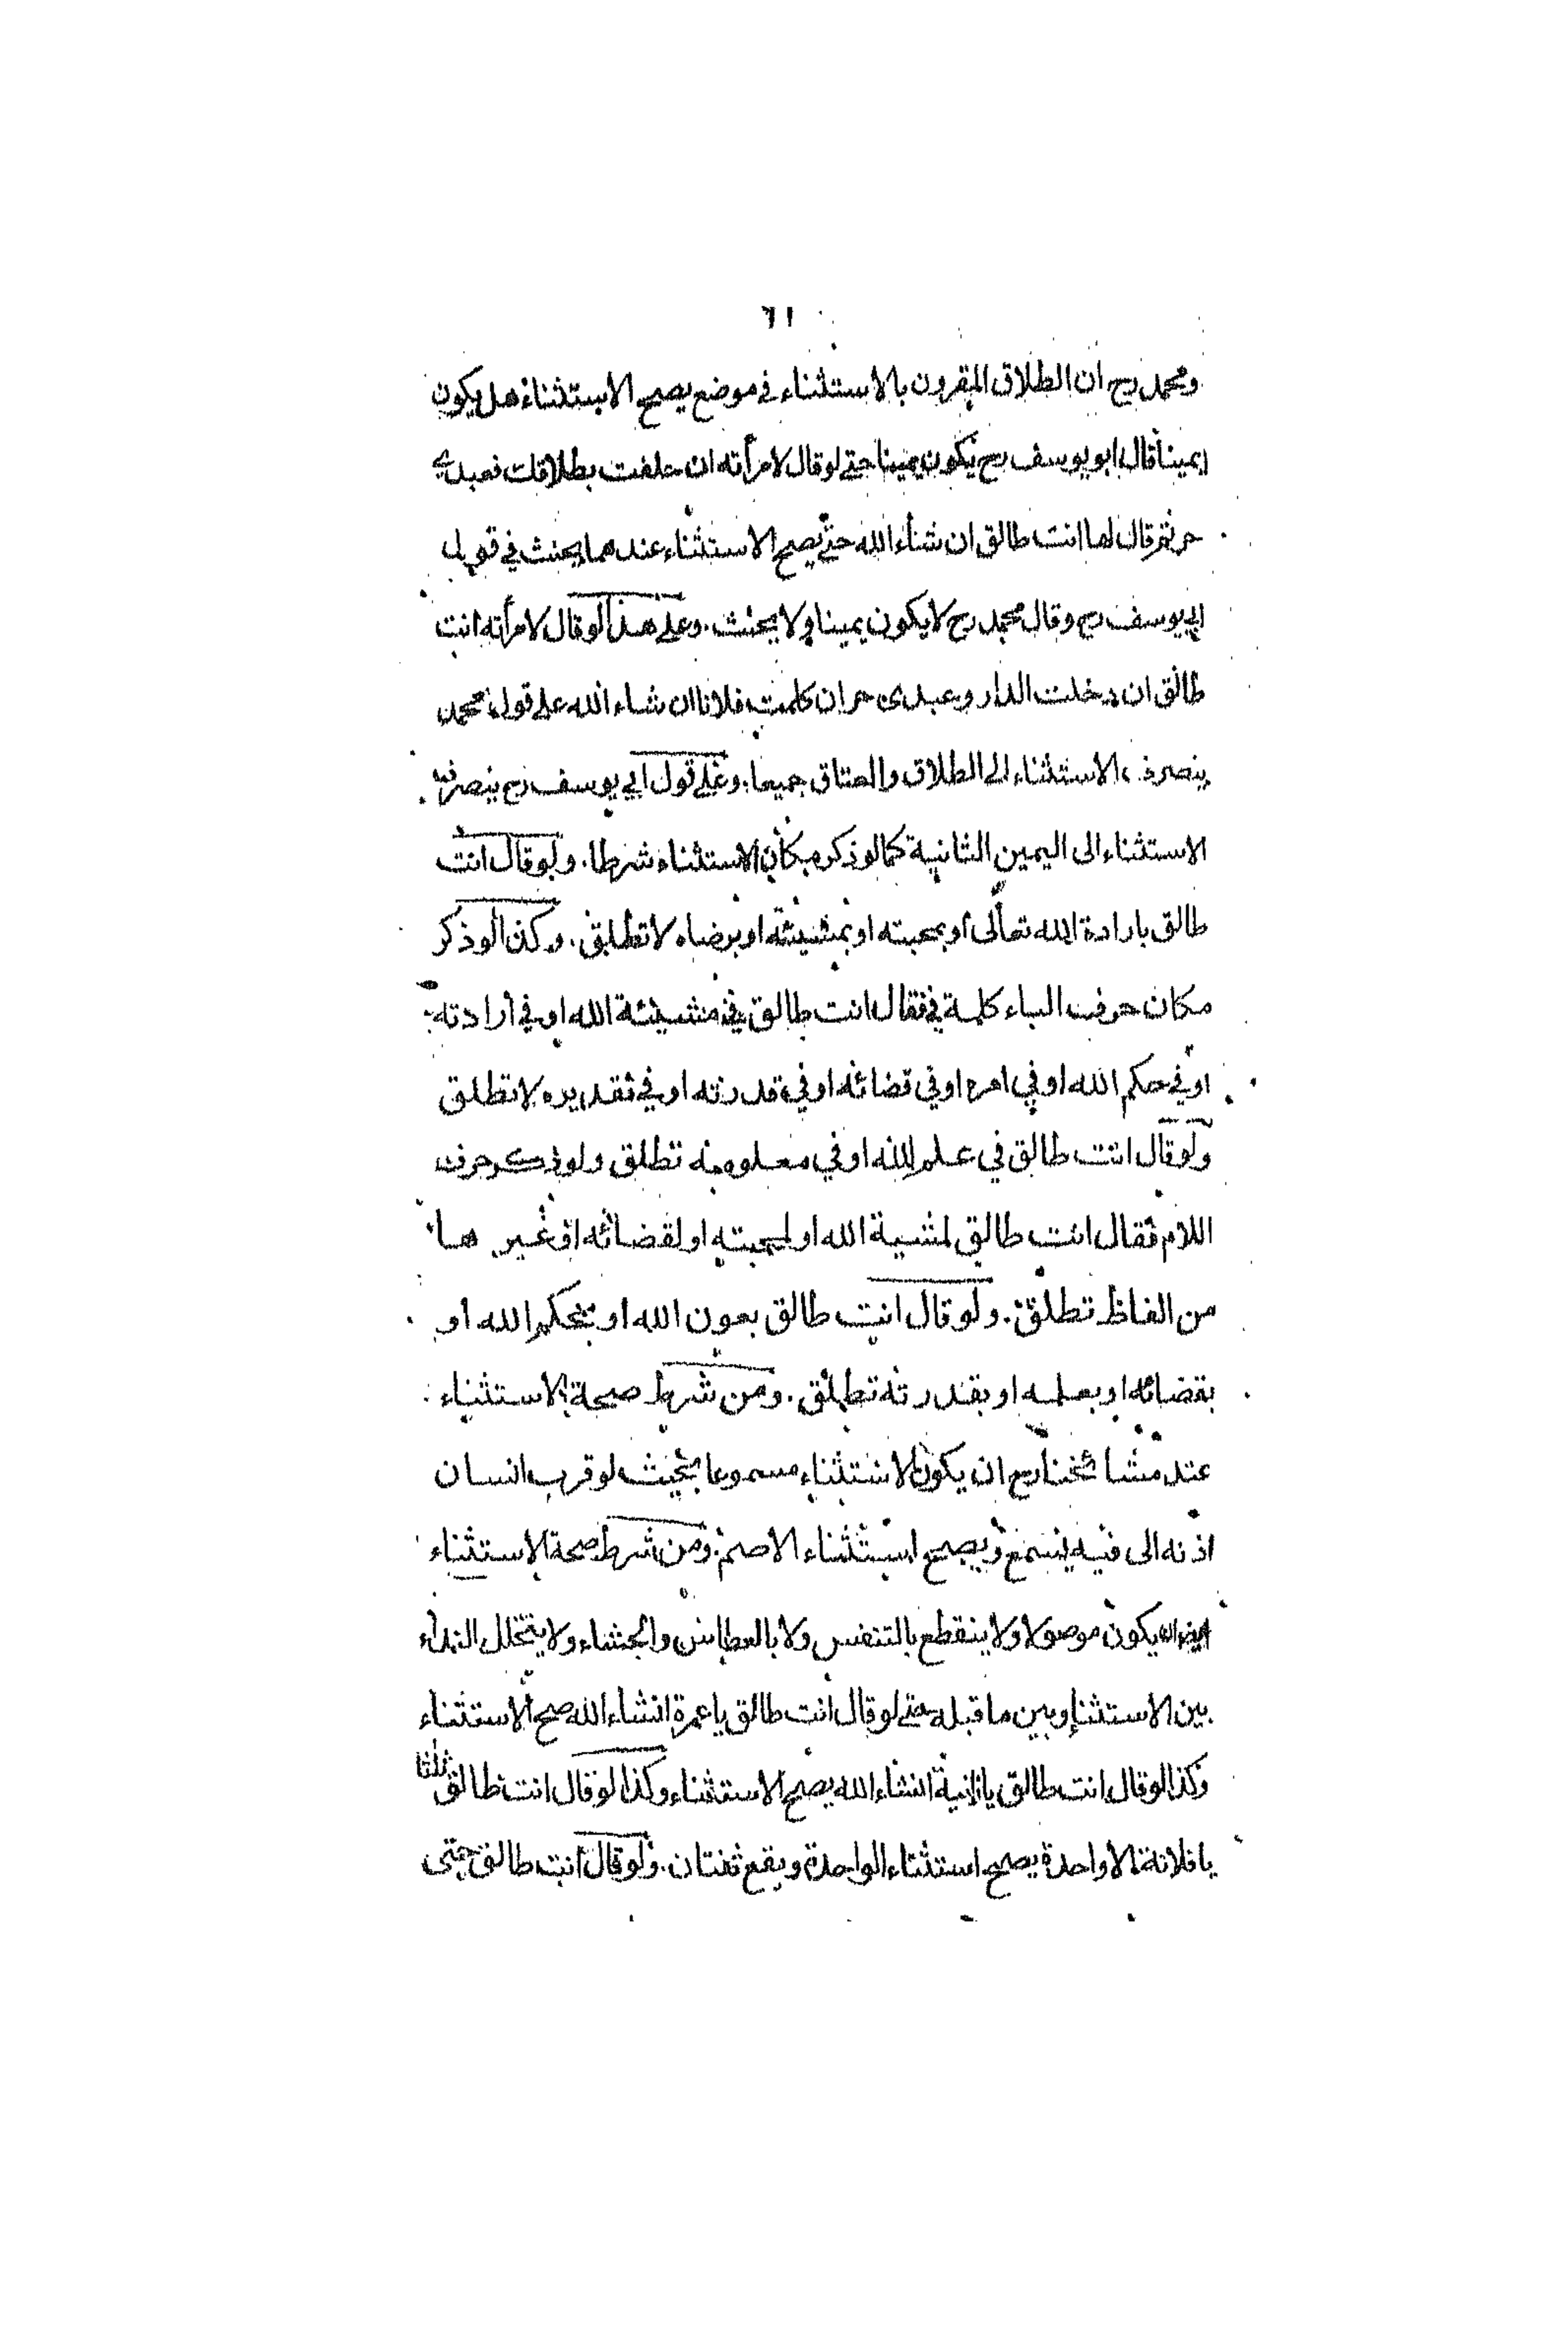 ٦١
ومحمد رح ان الطلاق المقرون بالاستثناء في موضع يصح الاستثناء هل يكون
يمينا قال ابو يوسف رح يكون يمينا حتى لو قال لامرأته ان حلفت بطلاقك فعبدي
حر ثم قال لها انت طالق ان شاء الله حتى يصح الاستثناء عندهما يحنث في قول
ابي يوسف رح وقال محمد رح لا يكون يمينا ولا يحنث. وعلى هذا لو قال لامرأته انت
طالق ان دخلت الدار وعبدي حر ان كلمت فلانا ان شاء الله على قول محمد
ينصرف الاستثناء الى الطلاق والعتاق جميعا. وعلى قول ابي يوسف رح ينصرف
الاستثناء الى اليمين الثانية كما لو ذكر مكان الاستثناء شرطا. ولو قال انت
طالق بارادة الله تعالى او بمحبته او بمشيئته او برضاه لا تطلق. وكذا لو ذكر
مكان حرف الباء كلمة في فقال انت طالق في مشيئة الله او في ارادته
او في حكم الله او في امره او في قضائه او في قدرته او في تقديره لا تطلق
ولو قال انت طالق في علم الله او في معلومه تطلق ولو ذكر حرف
اللام فقال انت طالق لمشية الله او لمحبته او لقضائه او غيرها
من الفاظ تطلق. ولو قال انت طالق بعون الله او بحكم الله او
بقضائه او بعلمه او بقدرته تطلق. ومن شرط صحة الاستثناء
عند مشائخنا رح ان يكون الاستثناء مسموعا بحيث لو قرب انسان
اذنه الى فيه يسمع ويصح استثناء الاصم. ومن شرط صحة الاستثناء
ان يكون موصولا ولا ينقطع بالتنفس ولا بالعطاس والجشاء ولا يتخلل النداء
بين الاستثناء وبين ما قبله حتى لو قال انت طالق يا عمرة انشاء الله صح الاستثناء
وكذا لو قال انت طالق يا زانية انشاء الله يصح الاستثناء وكذا لو قال انت طالق ثلثا
يا فلانة الا واحدة يصح استثناء الواحدة ويقع ثنتان. ولو قال انت طالق حتى